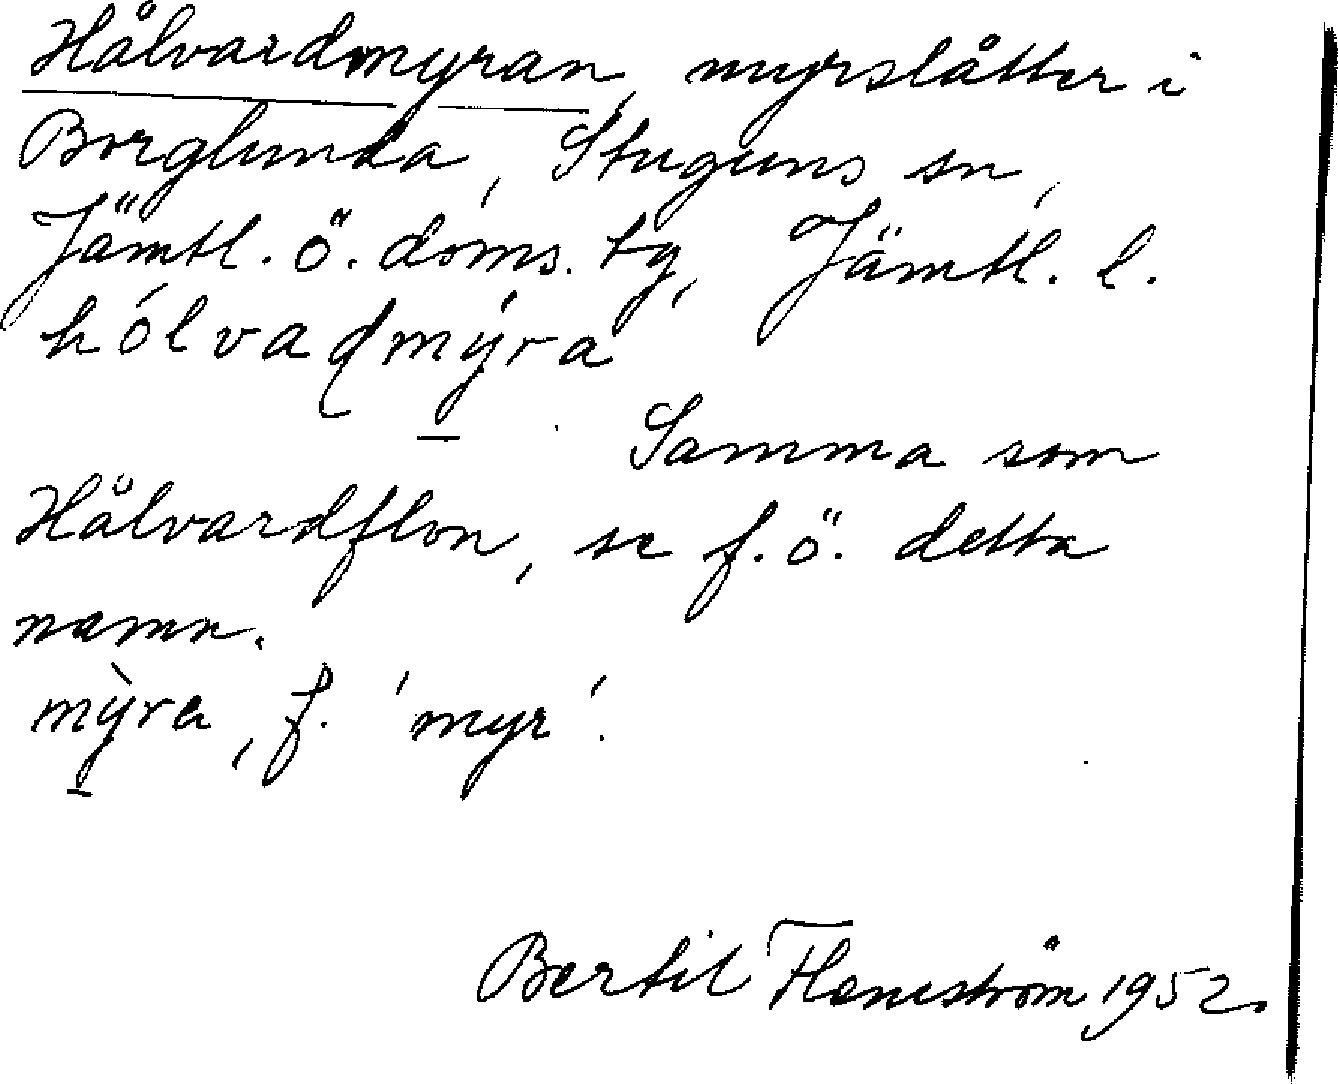 Hålvardmyran, myrslåtter i
Borglunda, Stuguns sn,
Jämtl. ö. doms. tg, Jämtl. l.
hólvaɖmýra
Samma som
Hålvardflon, se f.ö. detta
namn.
mỳra, f. 'myr'.
Bertil Flemström 1952.